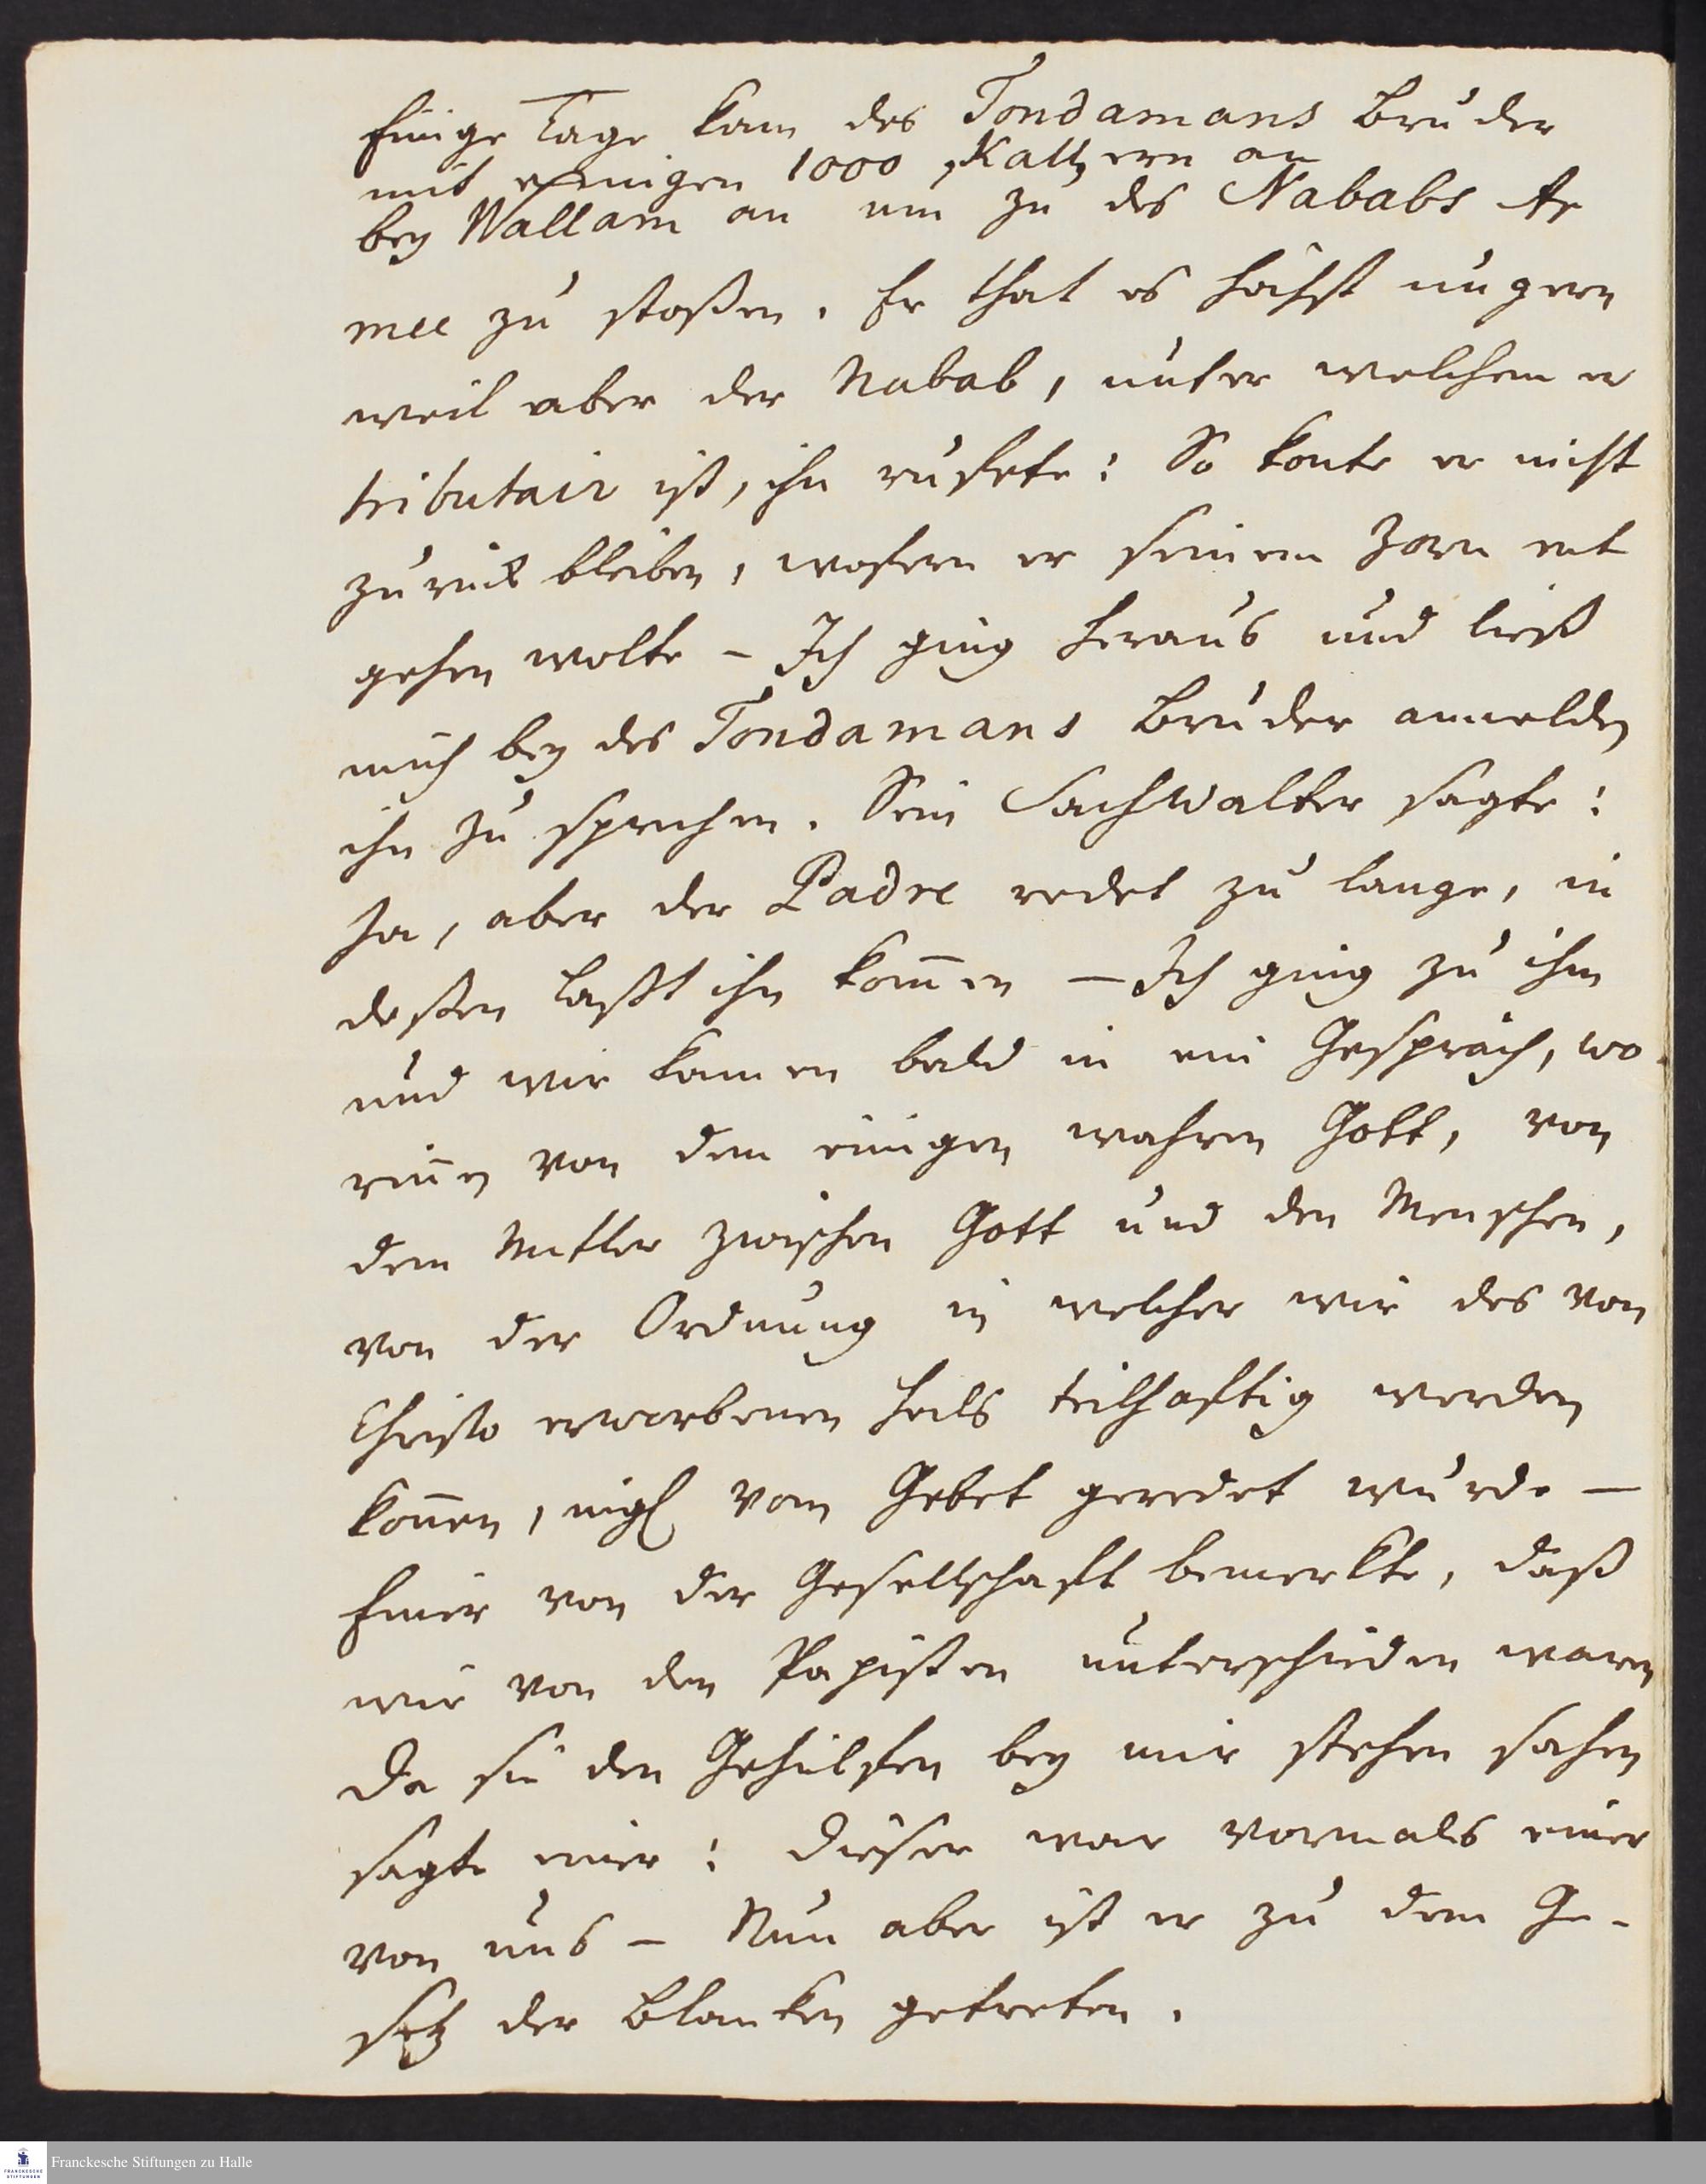 Einige Tage kam des Tondamans Bruder
mit einigen 1000 Kallern an
bey Wallam an um zu des Nababs Ar
mee zu stoßen. Er that es höchst ungern
weil aber der Nabab, unter welchem er
tributair ist, ihn rufete: So konte er nicht
zurük bleiben, wofern er seinem Zorn ent
gehen wolte – Ich ging heraus und ließ
mich bey des Tondamans Bruder anmelden
ihn zu sprechen. Sein Sachwalter sagte:
Ja, aber der Padre redet zu lange, in
deßen laßt ihn kom̅en – Ich ging zu ihm
und wir kamen bald in ein Gespräch, wo
rin̅en von dem einigen wahren Gott, von
dem Mitler zwischen Gott und den Menschen,
von der Ordnung in welcher wir des von
Christo erworbenen Heils teilhaftig werden
kön̅en, vom Gebet geredet wurde –
Einer von der Gesellschaft bemerkte, daß
wir von den Papisten unterschieden waren
Da sie den Gehülfen bey mir stehen sahen
sagte einer: dieser war vormals einer
von uns – Nun aber ist er zu dem Ge-
setz der Blanken getreten.
Franckesche Stiftungen zu Halle